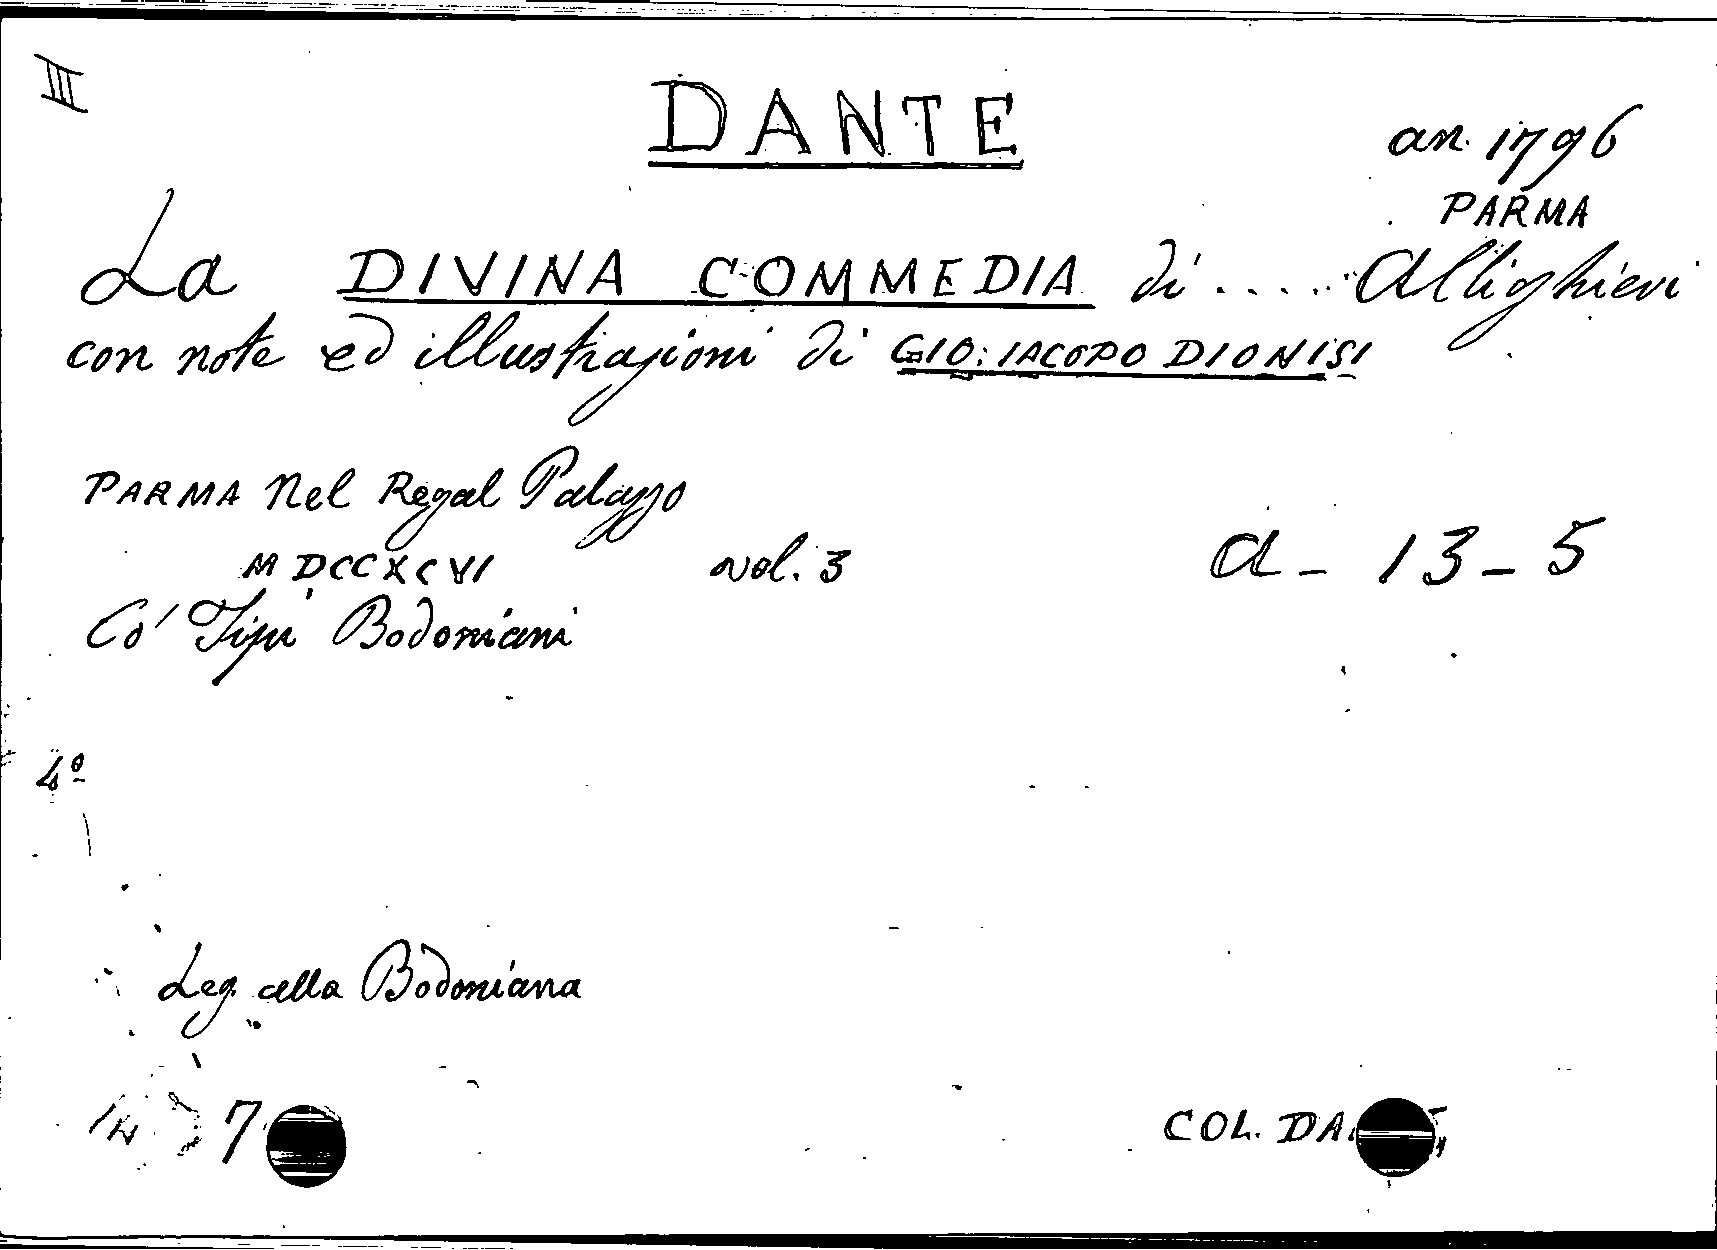 III
DANTE
an. 1796
PARMA
La DIVINA COMMEDIA di .... Allighieri
con note ed illustrazioni di GIO: IACOPO DIONISI
PARMA Nel Regal Palazzo
MDCCXCVI vol. 3
a - 13 - 5
Co' Tipi Bodoniani
4º
Leg. alla Bodoniana
7
COL. DA